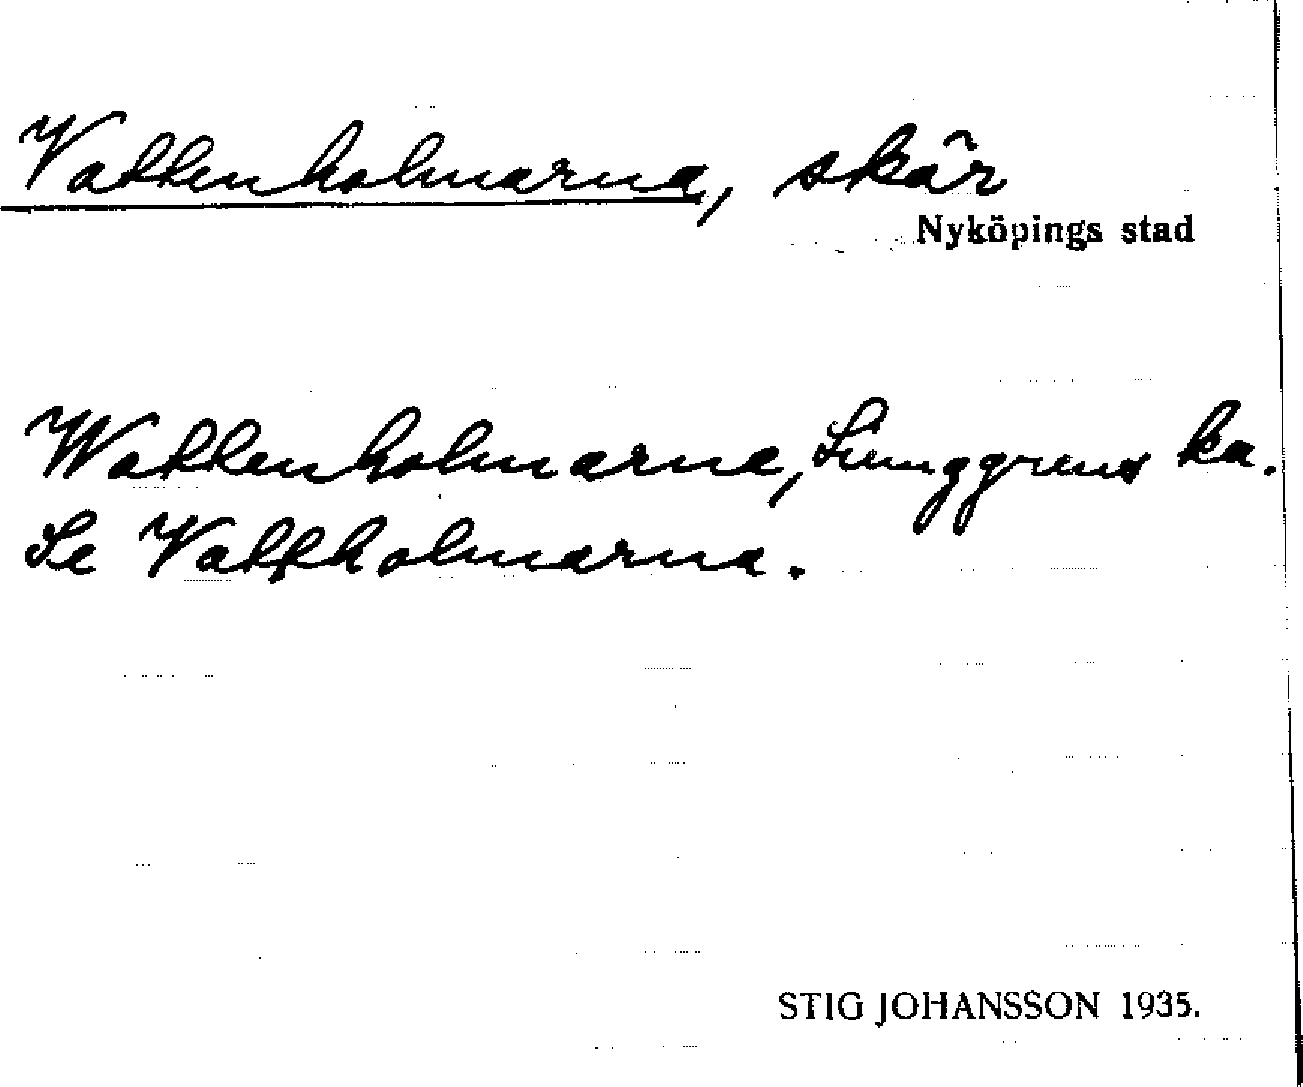 Vattenholmarna, skär
Nyköpings stad
Wattenholmarna, Ljunggrens ka.
Se Vattholmarna.
STIG JOHANSSON 1935.